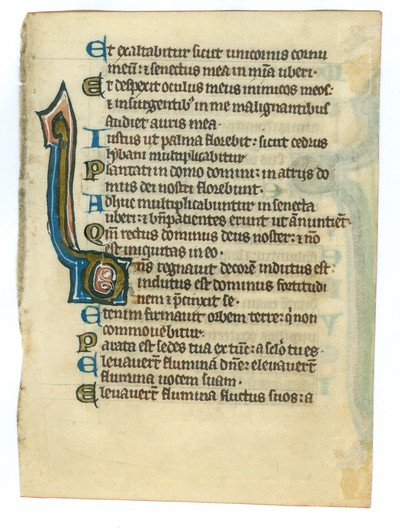 Et exaltabitur sicut unicornis cornu
meū: ⁊ senectus mea in mīa uberi.
Et despexit oculus meus inimicos meos:
⁊ insurgentibꝰ in me malignantibus
audiet auris mea.
Iustus ut palma florebit: sicut cedrus
lybani multiplicabitur
Plantati in domo domini: in atriis do
mus dei nostri florebunt.
Adhuc multiplicabuntur in senecta
uberi: ⁊ bn̄ patientes erunt ut anuntiēt.
Qm̄ rectus dominus deus noster: ⁊ nō
est iniquitas in eo.
Dn̄s regnauit decorē indutus est:
indutus est dominus fortitudi
nem ⁊ p̄cinxit se.
Etenim firmauit orbem terre: q̇ non
commouebitur.
Parata est sedes tua ex tūc: a sclo tu es.
Eleuauerūt flumina dn̄e: eleuauerūt
flumina uocem suam.
Eleuauerūt flumina fluctus suos: a